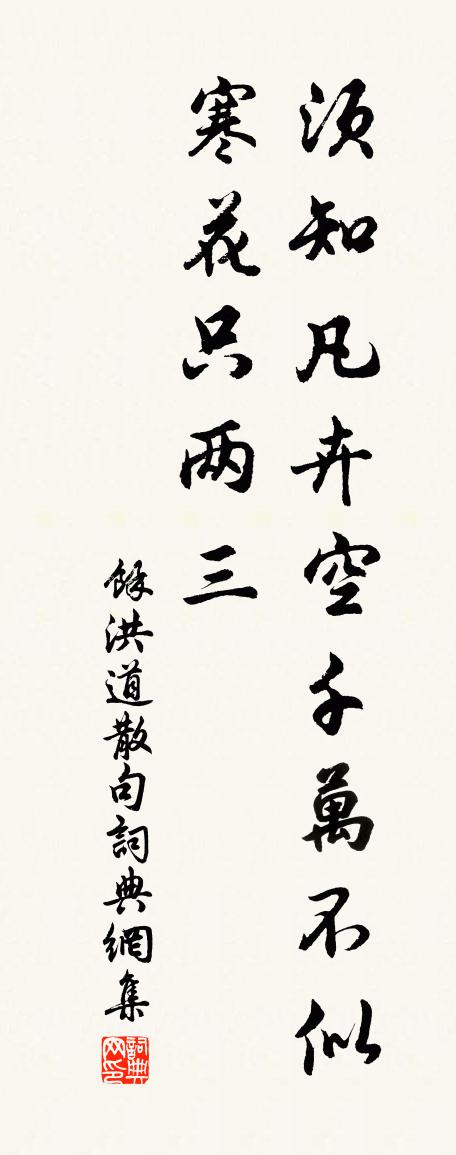 须知凡卉空千萬不似
寒花只两三
餘洪道散句詞典網集
詞典网印